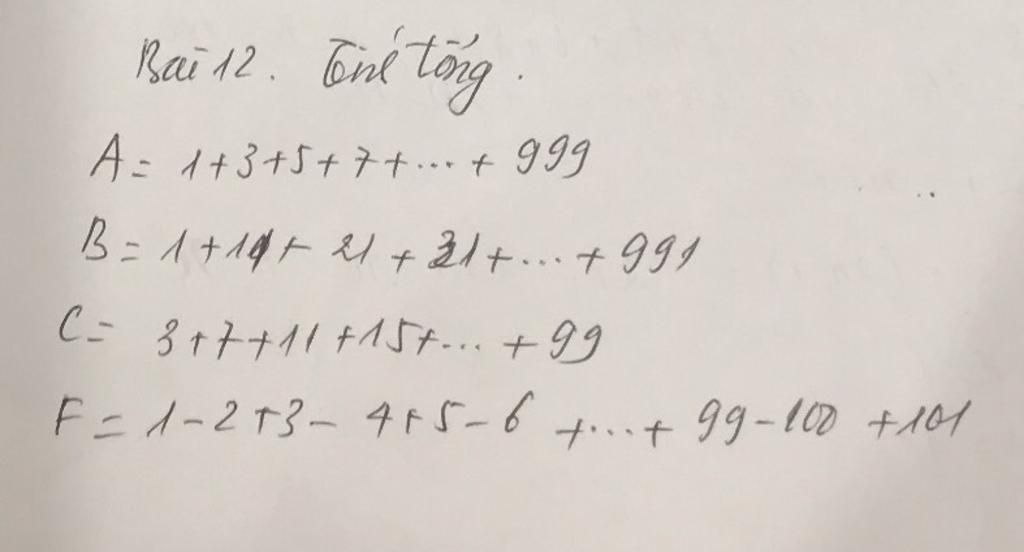 Bài 12. Tính tổng.
A = 1+3+5+7+...+ 999
B = 1+11+ 21 + 31+...+ 991
C = 3+7+11+15+... + 99
F = 1-2+3- 4+5-6 +...+ 99-100 +101